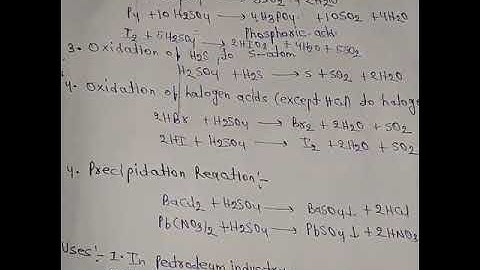 P4 + 10H2SO4 → 4H3PO4 + 10SO2 + 4H2O
Phosphoric acid
I2 + 5H2SO4 → 2HIO3 + 4H2O + 5SO2
3. Oxidation of H2S to S-atom
H2SO4 + H2S → S + SO2 + 2H2O
4. Oxidation of halogen acids (except HCl) to haloge
2HBr + H2SO4 → Br2 + 2H2O + SO2
2HI + H2SO4 → I2 + 2H2O + SO2
4. Precipidation Reaction:-
BaCl2 + H2SO4 → BaSO4↓ + 2HCl
Pb(NO3)2 + H2SO4 → PbSO4↓ + 2HNO3
Uses:- 1. In Petroleum industry